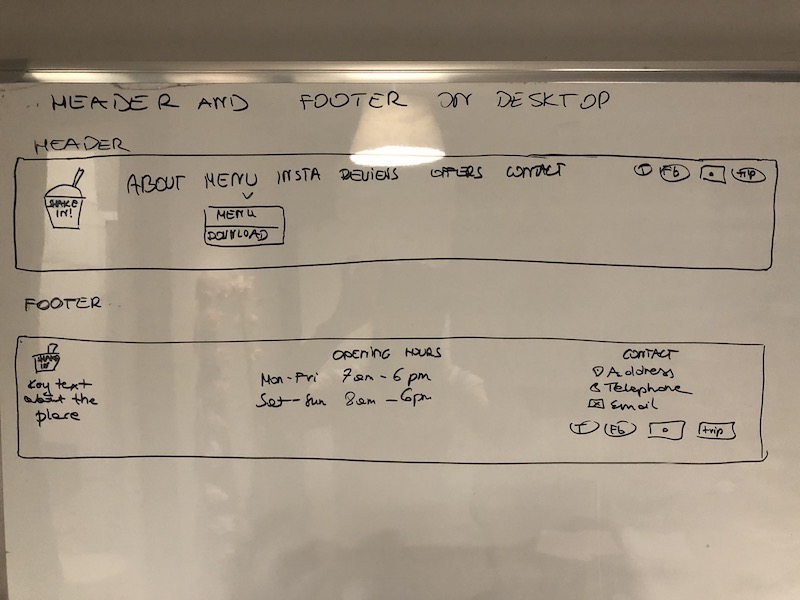 HEADER AND FOOTER ON DESKTOP
HEADER
SHAKE IN!
ABOUT MENU INSTA REVIEWS OFFERS CONTACT
T Fb trip
MENU
DOWNLOAD
FOOTER
SHAKE IN!
Key text
about the
place
OPENING HOURS
Mon-Fri 7am-6pm
Sat-Sun 8am-6pm
CONTACT
Address
Telephone
Email
T Fb trip